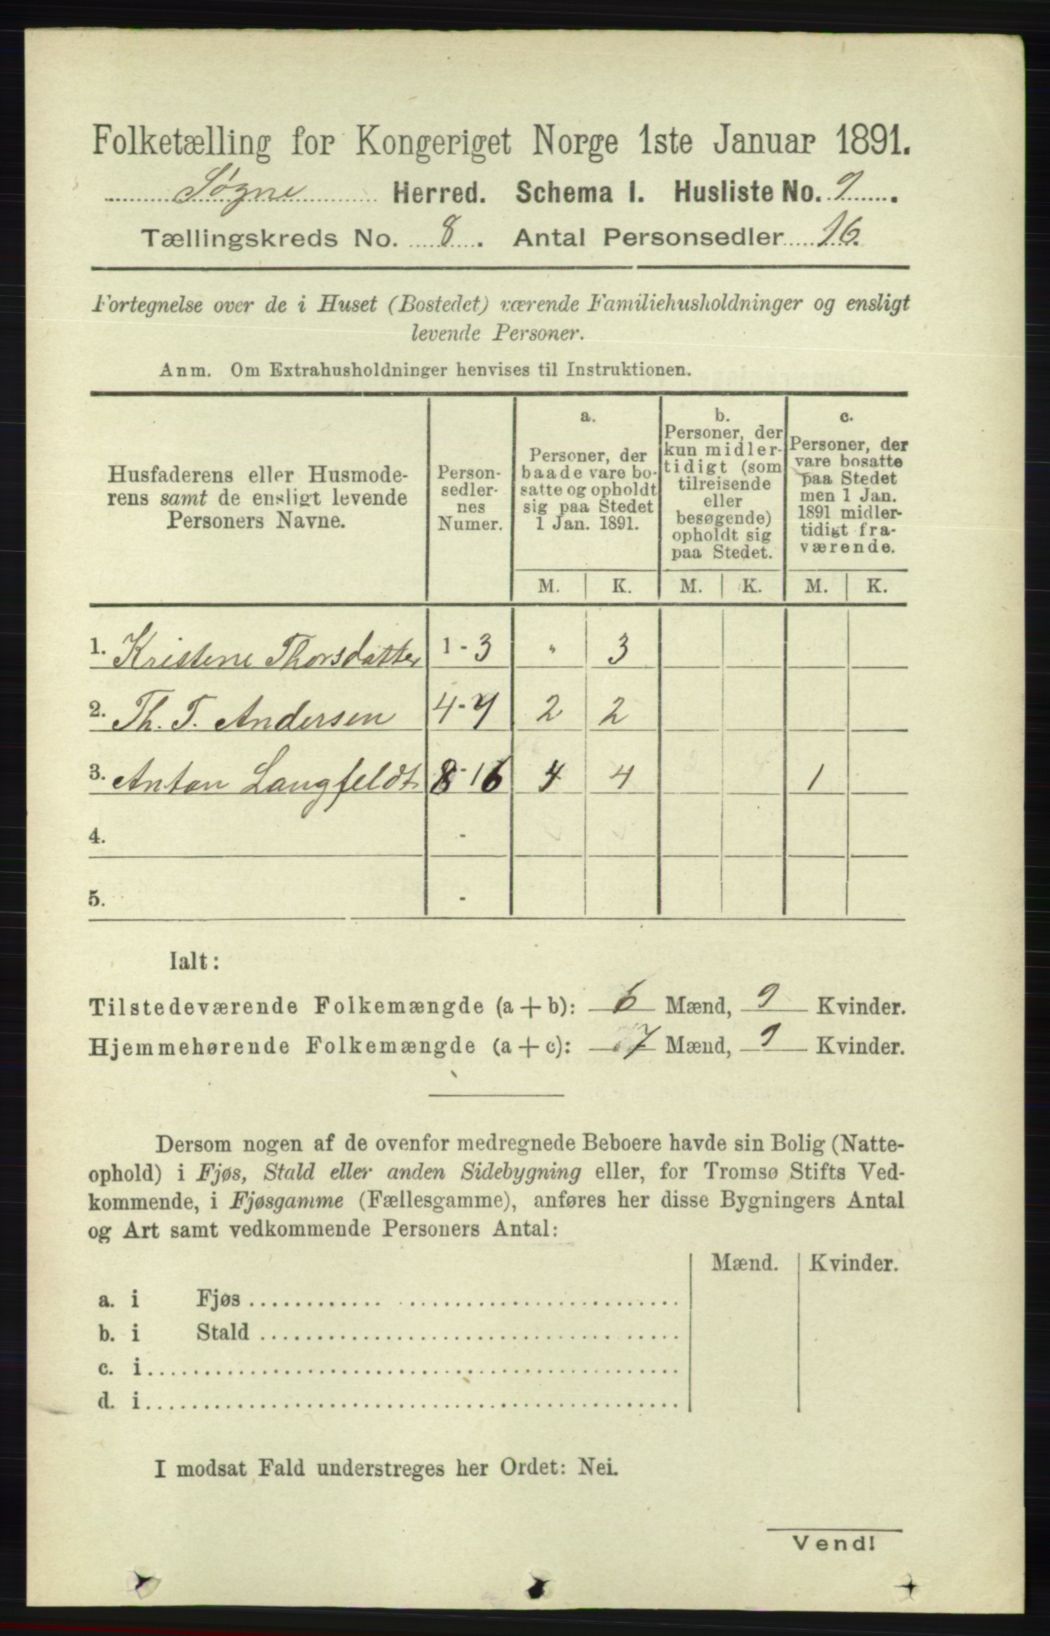 Folketælling for Kongeriget Norge 1ste Januar 1891.
Søgne Herred. Schema I. Husliste No. 9.
Tællingskreds No. 8. Antal Personsedler 16.
Fortegnelse over de i Huset (Bostedet) værende Familiehusholdninger og ensligt
levende Personer.
Anm. Om Extrahusholdninger henvises til Instruktionen.
Husfaderens eller Husmode-
rens samt de ensligt levende
Personers Navne.
Person-
sedler-
nes
Numer.
a.
Personer, der
baade vare bo-
satte og opholdt
sig paa Stedet
1 Jan. 1891.
b.
Personer, der
kun midler-
tidigt (som
tilreisende
eller
besøgende)
opholdt sig
paa Stedet.
c.
Personer, der
vare bosatte
paa Stedet
men 1 Jan.
1891 midler-
tidigt fra-
værende.
M. K. M. K. M. K.
1. Kristene Thorsdatter 1-3 " 3
2. Th. T. Andersen 4-7 2 2
3. Anton Langfeldt 8-16 4 4 1
4. -
5. -
Ialt:
Tilstedeværende Folkemængde (a+b): 6 Mænd, 9 Kvinder.
Hjemmehørende Folkemængde (a+c): 7 Mænd, 9 Kvinder.
Dersom nogen af de ovenfor medregnede Beboere havde sin Bolig (Natte-
ophold) i Fjøs, Stald eller anden Sidebygning eller, for Tromsø Stifts Ved-
kommende, i Fjøsgamme (Fællesgamme), anføres her disse Bygningers Antal
og Art samt vedkommende Personers Antal:
Mænd. Kvinder.
a. i Fjøs
b. i Stald
c. i
d. i
I modsat Fald understreges her Ordet: Nei.
Vend!